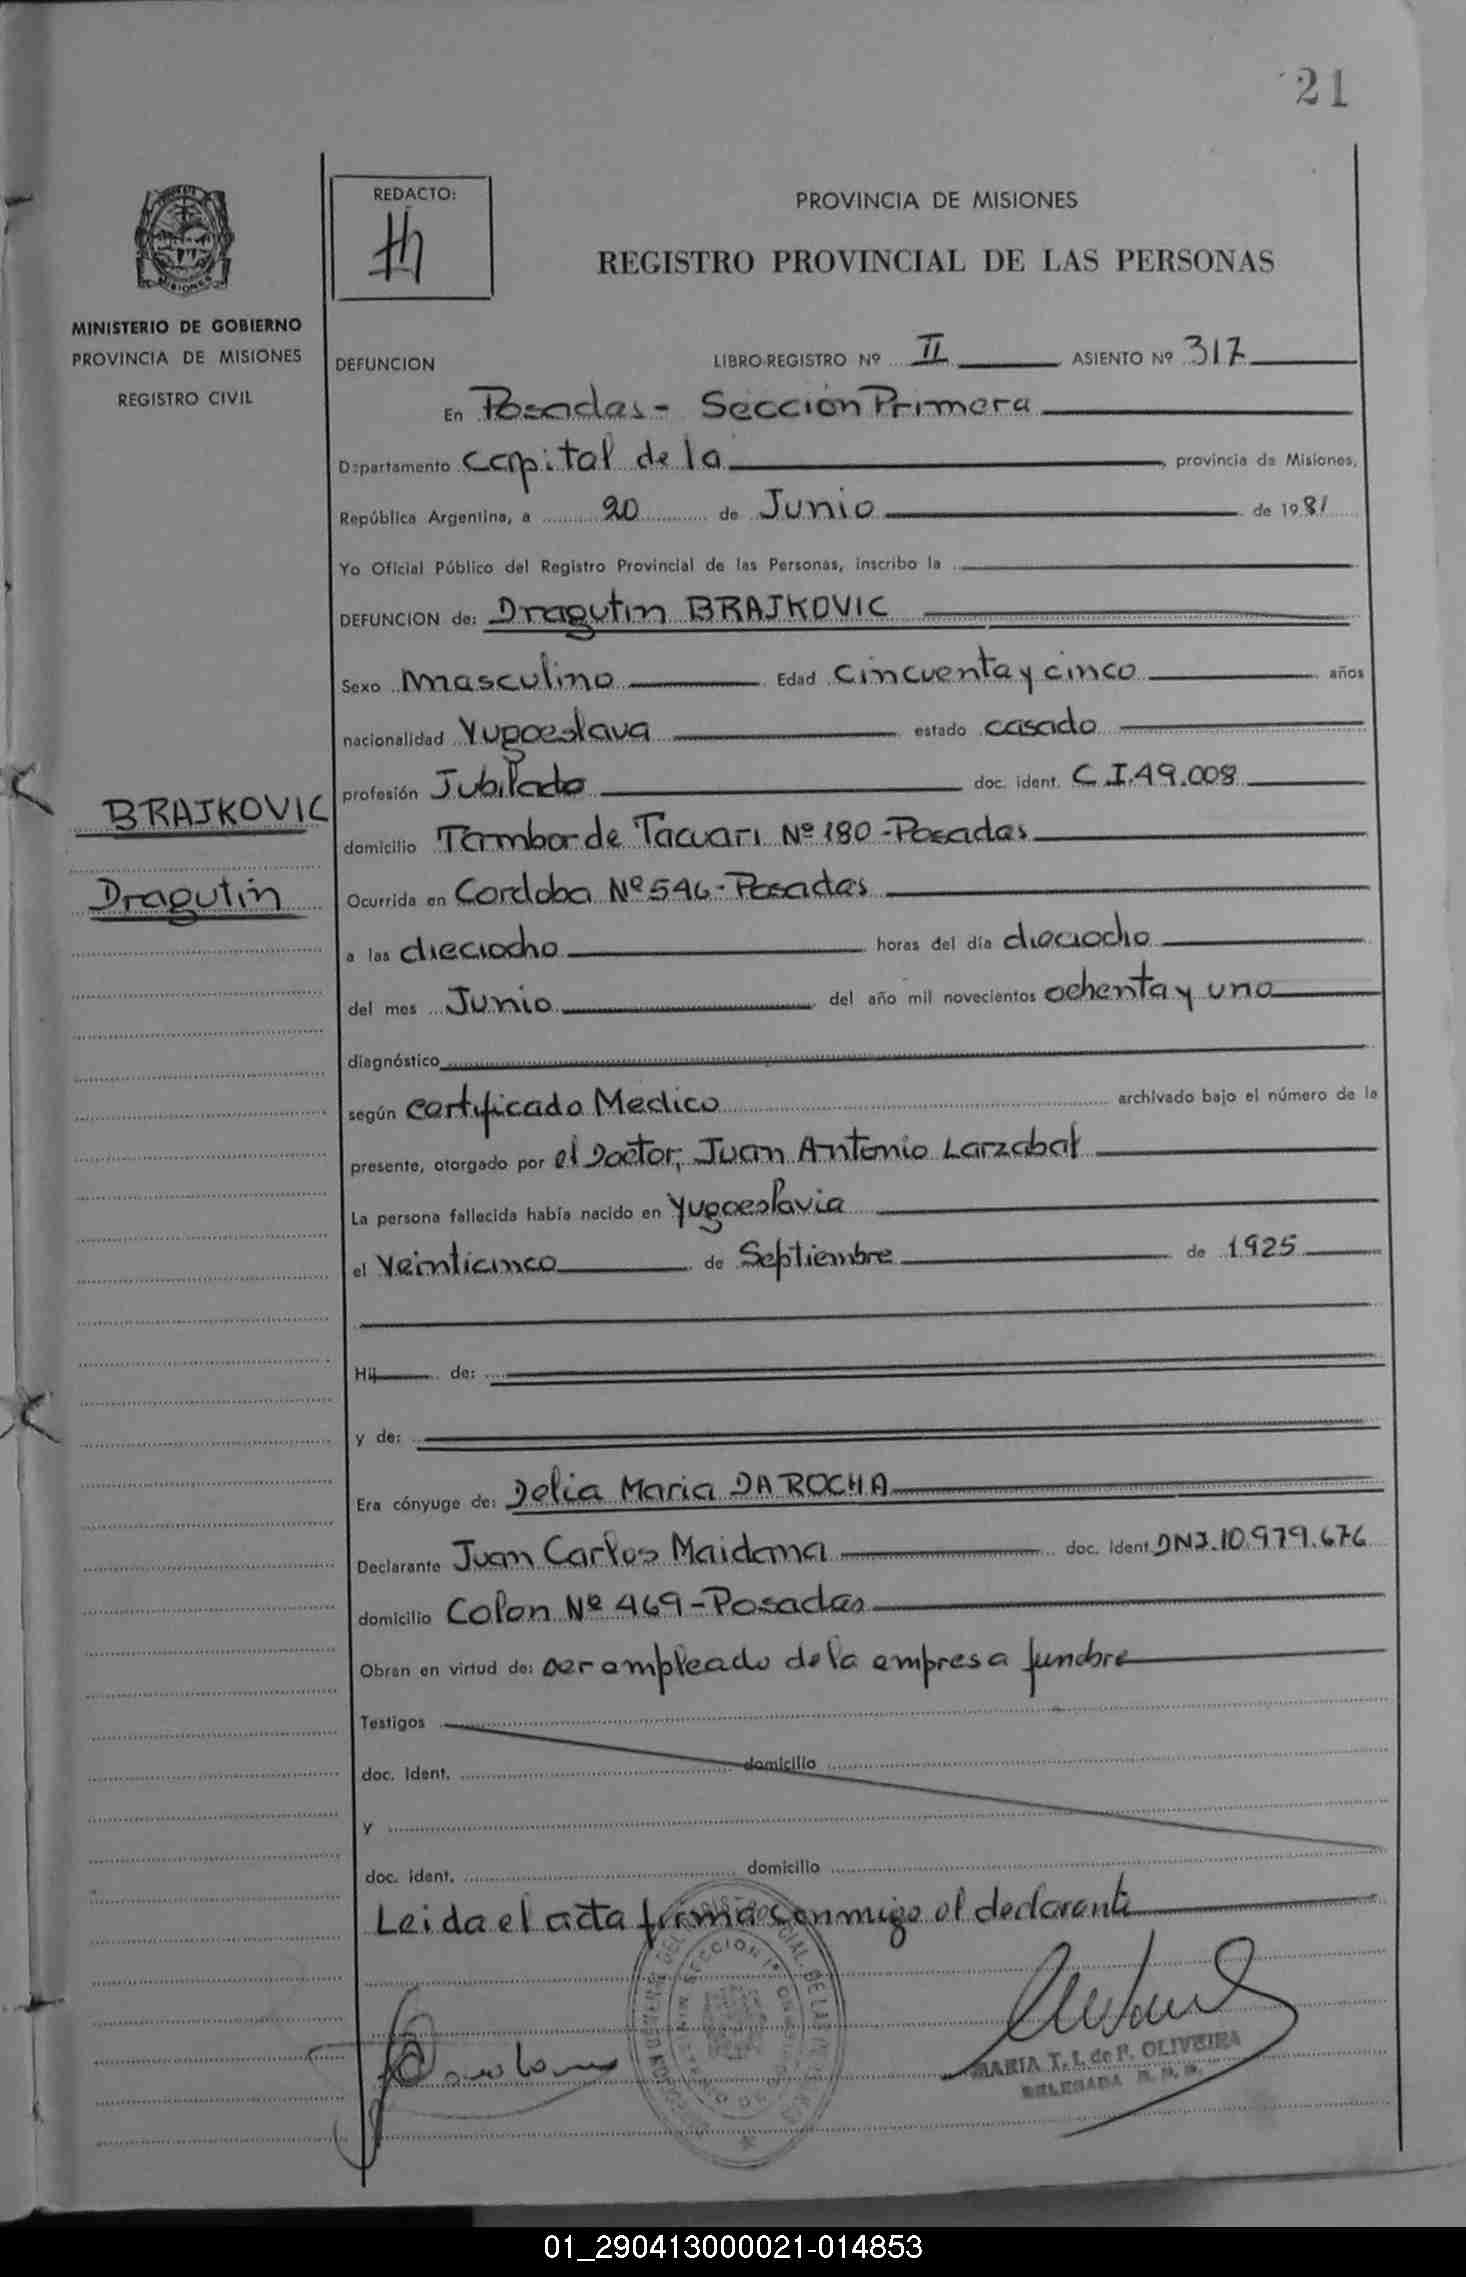 21
REDACTO:
PROVINCIA DE MISIONES
REGISTRO PROVINCIAL DE LAS PERSONAS
MISIONES
MINISTERIO DE GOBIERNO
PROVINCIA DE MISIONES
REGISTRO CIVIL
DEFUNCION LIBRO-REGISTRO Nº II ASIENTO Nº 317
En Posadas - Sección Primera
Departamento capital de la, provincia de Misiones,
República Argentina, a 20 de Junio de 1981
Yo Oficial Público del Registro Provincial de las Personas, inscribo la
DEFUNCION de: Dragutin BRAJKOVIC
Sexo masculino Edad cincuenta y cinco años
nacionalidad Yugoeslava estado casado
profesión Jubilado doc. ident. C.I.49.008
BRAJKOVIC
domicilio Tambor de Tacuari Nº 180 - Posadas
Dragutin
Ocurrida en Cordoba Nº 546 - Posadas
a las dieciocho horas del día dieciocho
del mes Junio del año mil novecientos ochenta y uno
diagnóstico
según certificado Medico archivado bajo el número de la
presente, otorgado por el Doctor, Juan Antonio Larzabal
La persona fallecida había nacido en Yugoeslavia
el veinticinco de Septiembre de 1925
Hij de:
y de:
Era cónyuge de: Delia Maria DA ROCHA
Declarante Juan Carlos Maidana doc. ident DNI.10.979.676
domicilio Colon Nº 469 - Posadas
Obran en virtud de: ser empleado de la empresa funebre
Testigos
doc. ident. domicilio
y
doc. ident. domicilio
Leida el acta firma conmigo el declarante
MARIA T. I. de P. OLIVEIRA
DELEGADA
01_290413000021-014853